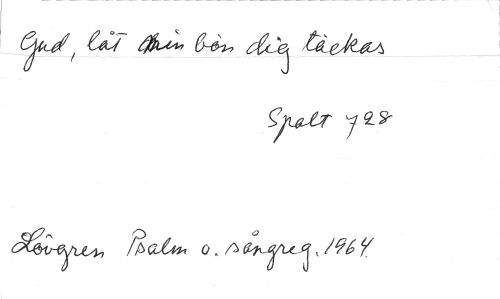 Gud, låt min bön dig täckas
Spalt 728
Lövgren Psalm o. sångreg. 1964.